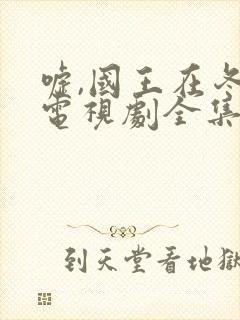 嘘,國王在冬
電視劇全集
到天堂看地獄